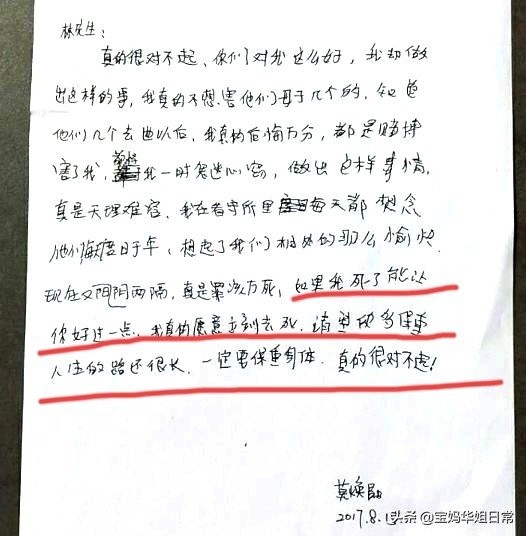 林先生：
真的很对不起、你们对我这么好，我却做
出这样的事，我真的不想害他们母子几个的，知道
他们几个去世以后，我真的后悔万分，都是赌博
害了我，我一时鬼迷心窍，做出这样事情，
真是天理难容、我在看守所里每天都想念
他们度日于年，想起了我们相处的那么愉快
现在又阴阴两隔，真是罪该万死，如果我死了能让
你好过一点，我真的愿意立刻去死，请望多保重
人生的路还很长，一定要保重身体．真的很对不起！
莫焕晶
2017.8.
头条 @宝妈华姐日常